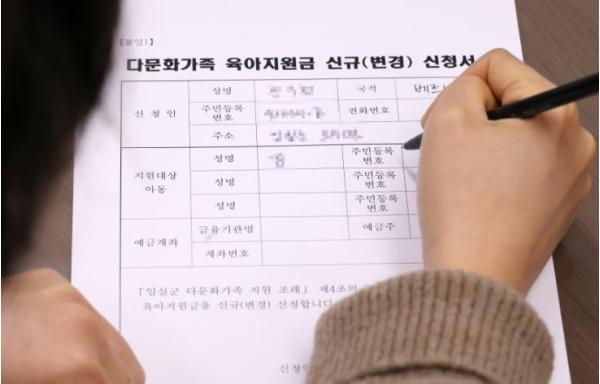 【붙임1】
다문화가족 육아지원금 신규(변경) 신청서
신 청 인
성명
국적
베트
주민등록
번호
전화번호
주소
지원대상
아동
성명
주민등록
번호
성명
주민등록
번호
성명
주민등록
번호
예금계좌
금융기관명
예금주
계좌번호
「임실군 다문화가족 지원 조례」 제4조의
육아지원금을 신규(변경) 신청합니다
신청인